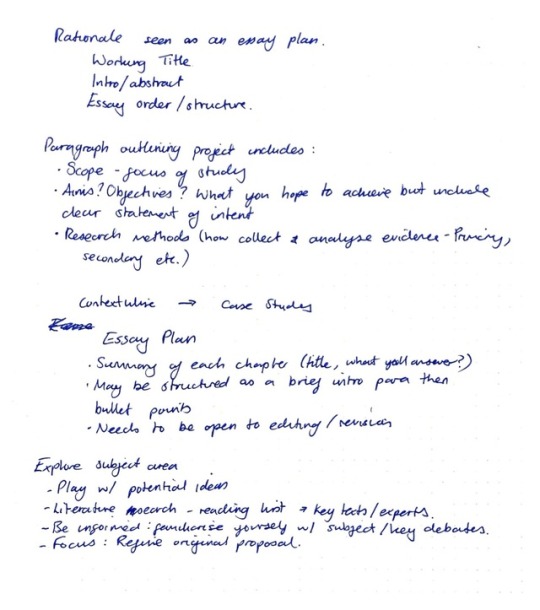 Rationale seen as an essay plan.
Working Title
Intro/abstract
Essay order/structure.
Paragraph outlining project includes:
· Scope - focus of study
· Aims? Objectives? What you hope to achieve but include
clear statement of intent
· Research methods (how collect & analyse evidence - Primary,
secondary etc.)
Contextualise → Case Study
Essay Plan
· Summary of each chapter (title, what you'll answer?)
· May be structured as a brief intro para then
bullet points
· Needs to be open to editing/revision
Explore subject area
- Play w/ potential ideas
- Literature research - reading list → key texts/experts.
- Be informed: familiarise yourself w/ subject/key debates.
- Focus: Refine original proposal.